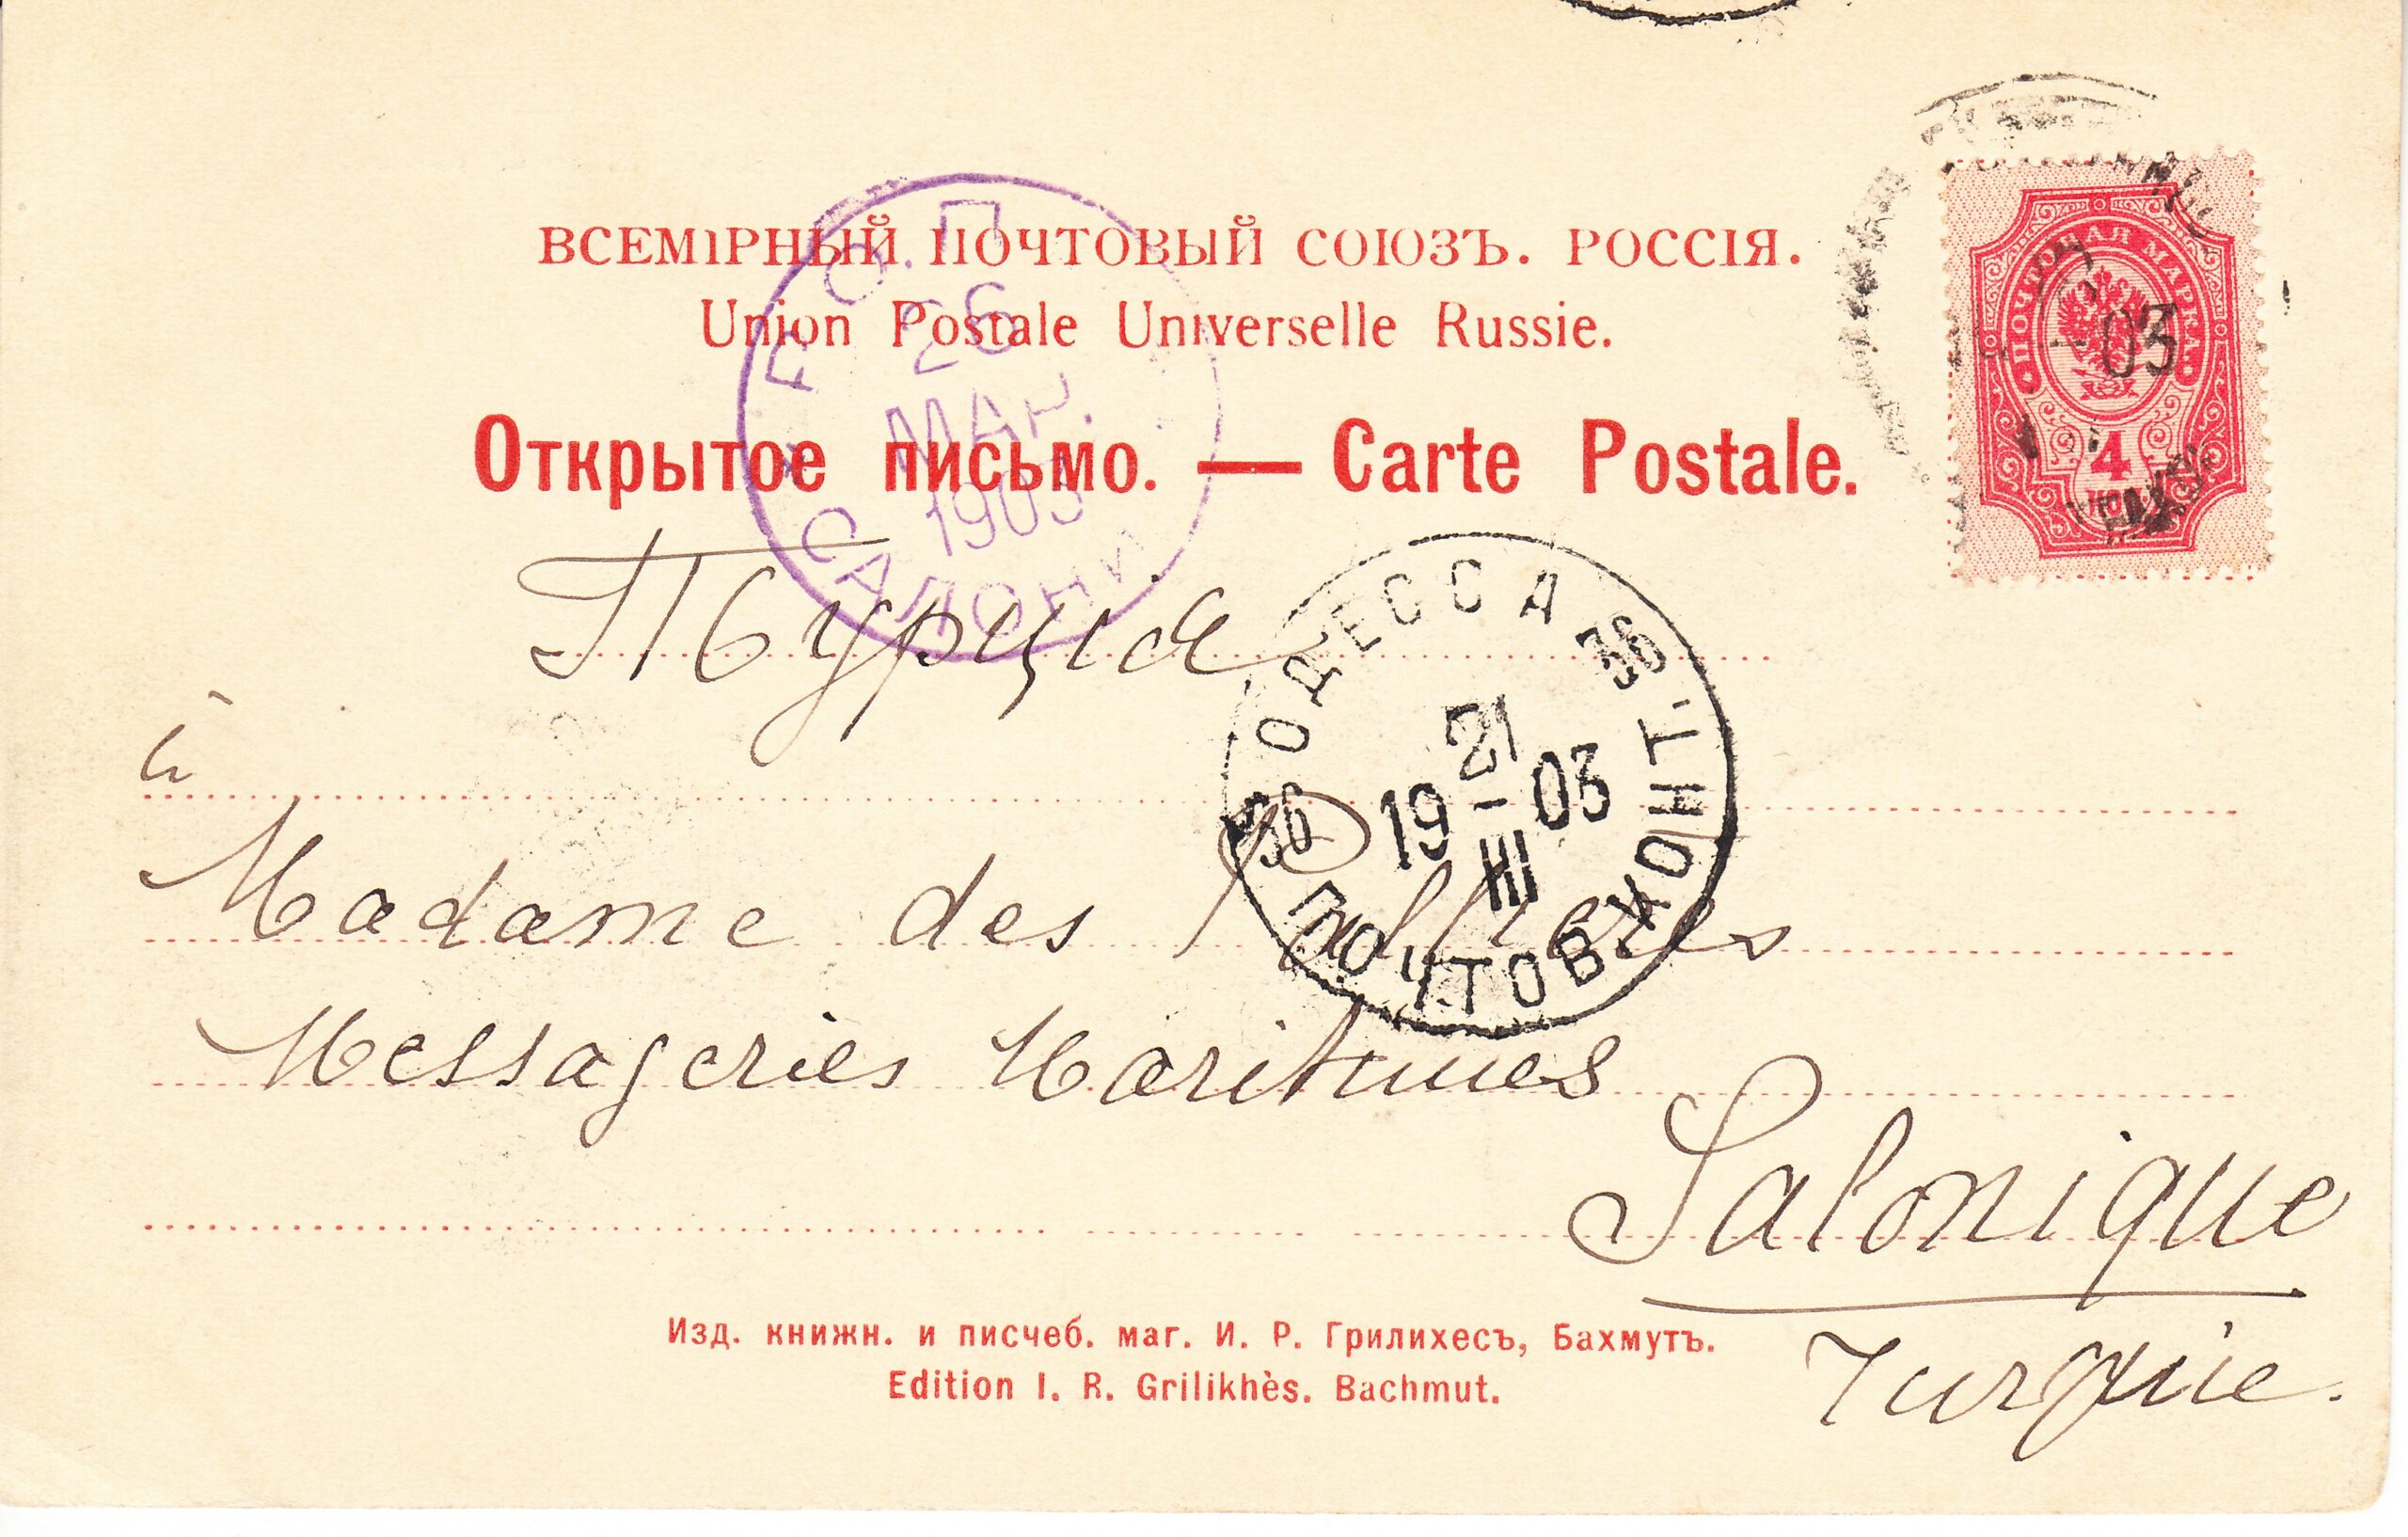 ВСЕМІРНЫЙ ПОЧТОВЫЙ СОЮЗЪ. РОССІЯ.
Union Postale Universelle Russie.
Открытое письмо. — Carte Postale.
ПОЧТОВАЯ МАРКА
4
03
Р. О. П.
26
МАР.
1903
САЛОНИ
Турція
ОДЕССА
36 36
21
19 – 03
III
ПОЧТОВ. КОНТ.
à
Madame des
Messageries Maritimes
Salonique
Turquie.
Изд. книжн. и писчеб. маг. И. Р. Грилихесъ, Бахмутъ.
Edition I. R. Grilikhès. Bachmut.